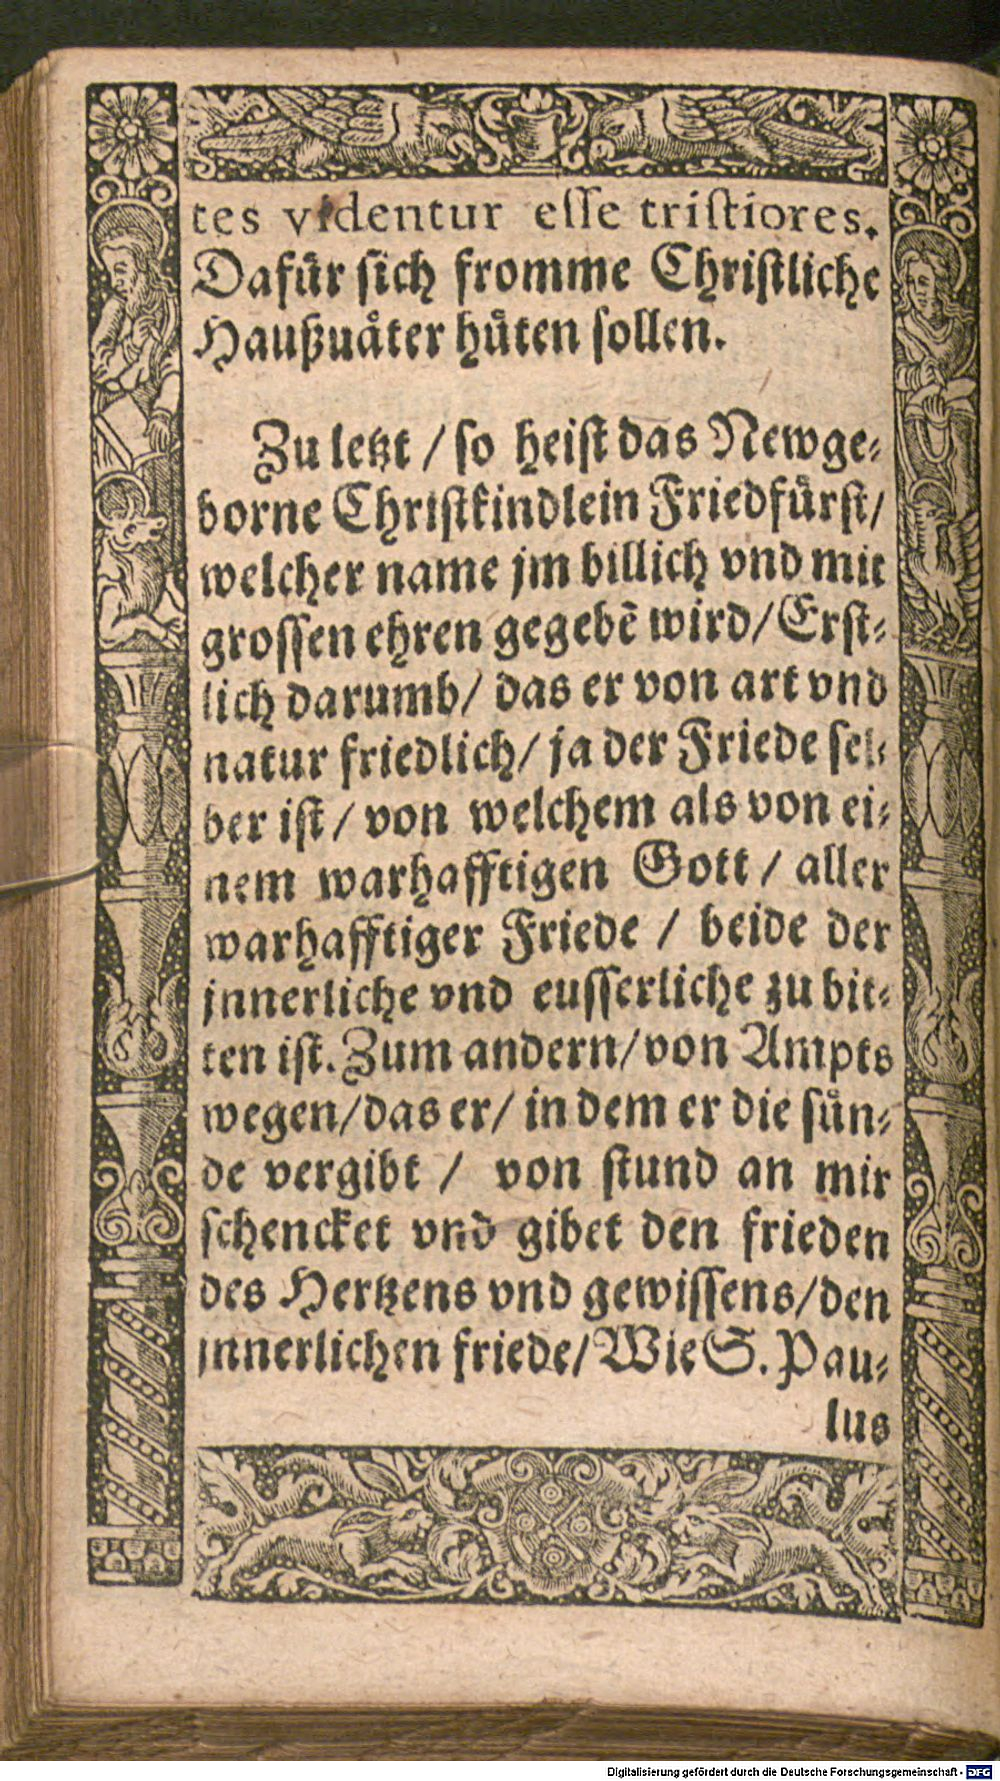 tes videntur esse tristiores.
Dafuͤr sich fromme Christliche
Haußuaͤter huͤten sollen.
Zu letzt / so heist das Newge⸗
borne Christkindlein Friedfuͤrst/
welcher name jm billich vnd mit
grossen ehren gegebē wird/Erst⸗
lich darumb/ das er von art vnd
natur friedlich/ ja der Friede sel⸗
ber ist / von welchem als von ei⸗
nem warhafftigen Gott / aller
warhafftiger Friede / beide der
jnnerliche vnd eusserliche zu bit⸗
ten ist. Zum andern/von Ampts
wegen/das er/ in dem er die suͤn⸗
de vergibt / von stund an mir
schencket vnd gibet den frieden
des Hertzens vnd gewissens/den
jnnerlichen friede/Wie S. Pau⸗
lus
Digitalisierung gefördert durch die Deutsche Forschungsgemeinschaft - DFG